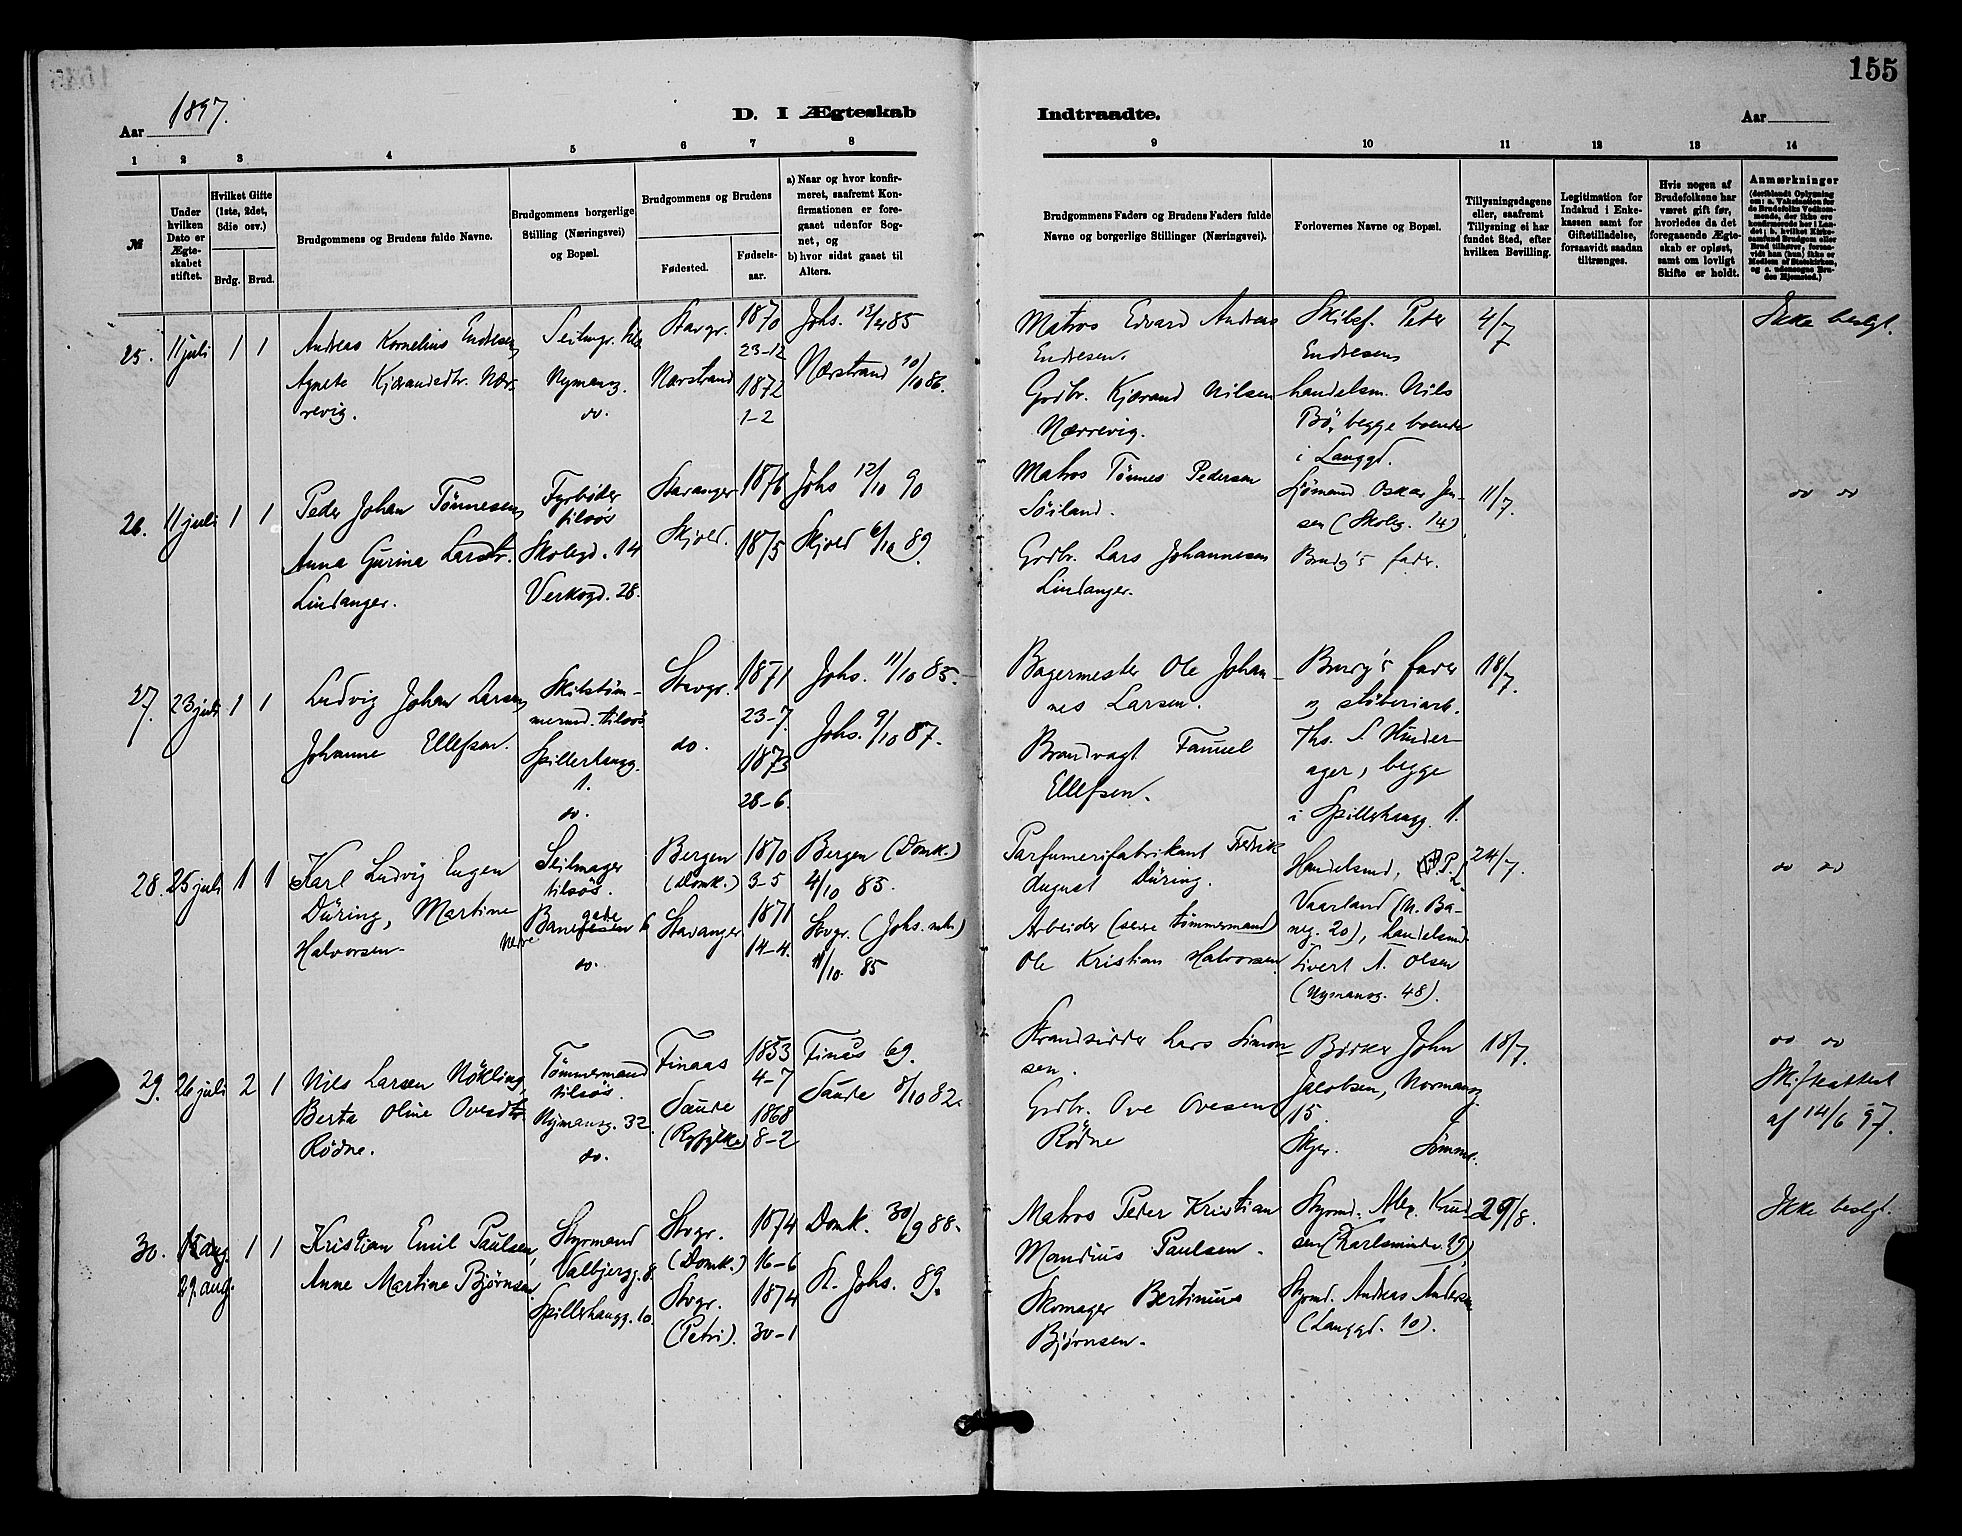 155
Aar 1897.
D. I Ægteskab
Indtraadte.
Aar
1 2 3 4 5 6 7 8
9 10 11 12 13 14
№
Under hvilken Dato er Ægteskabet stiftet.
Hvilket Gifte (1ste, 2det, 3die osv.)
Brdg. Brud.
Brudgommens og Brudens fulde Navne.
Brudgommens borgerlige Stilling (Næringsvei) og Bopæl.
Brudgommens og Brudens
Fødested.
Fødselsaar.
a) Naar og hvor konfirmeret, saafremt Konfirmationen er foregaaet udenfor Sognet, og
b) hvor sidst gaaet til Alters.
Brudgommens Faders og Brudens Faders fulde Navne og borgerlige Stillinger (Næringsvei).
Forlovernes Navne og Bopæl.
Tillysningsdagene eller, saafremt Tillysning ei har fundet Sted, efter hvilken Bevilling.
Legitimation for Indskud i Enkekassen samt for Giftetilladelse, forsaavidt saadan tiltrænges.
Hvis nogen af Brudefolkene har været gift før, hvorledes da det foregaaende Ægteskab er opløst, samt om lovligt Skifte er holdt.
Anmærkninger
25. 11 juli 1 1
Andreas Kornelius Endresen,
Agnete Kjørandsdtr. Nær-
revig.
Nymansg.
do.
Stavgr.
Nærstrand
1870
23-12
1872
1-2
Johs.
Nærstrand 10/10 86.
Matros Edvard Andreas
Endresen.
Grdbr. Kjørand Nilsen
Nærrevig.
Skibsf. Peter
Endresen
handelsm. Nils
Bö, begge boende
i Langgd.
4/7
Ikke beslgt.
26. 11 juli 1 1
Peder Johan Tönnesen,
Anna Gurina Larsdtr.
Lindanger.
Fyrböder
tilsös
Skolegd. 14
Verksgd. 28.
Stavanger
Skjold.
1876
1875
Johs 12/10 90
Skjold 6/10 89.
Matros Tönnes Pedersen
Söiland.
Grdbr. Lars Johannesen
Lindanger.
Sjömand Oskar Jen-
sen (Skoleg. 14)
Brudg's fader.
11/7.
do do
27. 23 juli 1 1
Ludvig Johan Larsen,
Johanne Ellefsen.
Skibstöm-
mermd. tilsös
Spillerhaugg.
1.
do.
Stavgr.
do.
1871
23-7.
1873
28-6.
Johs. 11/10 85.
Johs. 9/10 87.
Bagermester Ole Johan-
nes Larsen.
Brandvagt Samuel
Ellefsen.
Brudg's fader
og stöberiarb.
Ths. S. Hinder-
ager, begge
i Spillerhaugg. 1.
18/7.
28. 25 juli 1 1
Karl Ludvig Eugen
Düring, Martine
Halvorsen.
Seilmager
tilsös.
Nedre
do.
Bergen
(Domk.)
Stavanger
1870
3-5
1871
14-4.
Bergen (Domk.)
4/10 85.
Stvgr. (Johs. mh.)
11/10. 85
Parfumerifabrikant Fredrik
August Düring.
Arbeider (senere tömmermand)
Ole Kristian Halvorsen.
Handelsmd, P. L.
Vaarland (N. Ba-
neg. 20), handelsmd
Sivert A. Olsen
(Nymansg. 48).
24/7.
do do
29. 26 juli 2 1
Nils Larsen Nökling,
Berta Oline Ovesdtr.
Rödne.
Tömmermand
tilsös.
Nymansg. 32
do.
Finaas
Saude
(Ryfylke)
1853
4-7
1868
8-2
Finås 69.
Saude 8/10 82.
Strandsidder Lars Simon-
sen.
Grdbr. Ove Ovesen
Rödne
Bödker John
Jacobsen, Normansg.
15.
Skyr. Sömme.
18/7.
do do
Skifteattest
af 14/6 97.
30. 15 aug. 1 1
29. aug.
Kristian Emil Paulsen,
Anne Martine Bjørnsen,
Styrmand
Valbjergg. 8.
Spillerhaugg. 10
Stvgr.
(Domk.)
Stvgr.
(Petri).
1874
16-6
1874
30-1
Domk. 30/9 88.
St. Johs. 89.
Matros Peder Kristian
Mandius Paulsen.
Skomager Bertinius
Bjørnsen.
Styrmd. Alex. Knud-
sen (Karlsminde)
Styrmd. Andreas Andersen
(Langgd. 10).
29/8.
Ikke beslgt.